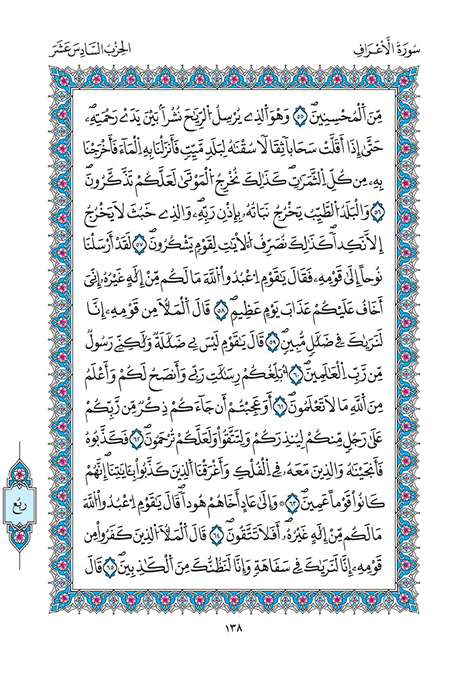 سُورَةُ الْأَعْرَافِ
الحِزْبُ السَّادِسَ عَشَرَ
مِّنَ اَ۬لْمُحْسِنِينَۖ ٥٥ وَهُوَ اَ۬لذِے يُرْسِلُ اُ۬لرِّيَٰحَ نُشُراَۢ بَيْنَ يَدَےْ رَحْمَتِهِۦۖ
حَتَّىٰ إِذَا أَقَلَّتْ سَحَاباٗ ثِقَالاٗ سُقْنَٰهُ لِبَلَدٖ مَّيِّتٖ فَأَنزَلْنَا بِهِ اِ۬لْمَآءَ فَأَخْرَجْنَا
بِهِۦ مِن كُلِّ اِ۬لثَّمَرَٰتِۖ كَذَٰلِكَ نُخْرِجُ اُ۬لْمَوْتَىٰ لَعَلَّكُمْ تَذَّكَّرُونَۖ
٥٦ وَالْبَلَدُ اُ۬لطَّيِّبُ يَخْرُجُ نَبَاتُهُۥ بِإِذْنِ رَبِّهِۦۖ وَالذِے خَبُثَ لَا يَخْرُجُ
إِلَّا نَكِداٗۖ كَذَٰلِكَ نُصَرِّفُ اُ۬لْأٓيَٰتِ لِقَوْمٖ يَشْكُرُونَۖ ٥٧ لَقَدْ أَرْسَلْنَا
نُوحاً إِلَىٰ قَوْمِهِۦ فَقَالَ يَٰقَوْمِ اِ۟عْبُدُواْ اُ۬للَّهَ مَا لَكُم مِّنْ إِلَٰهٍ غَيْرُهُۥٓ إِنِّيَ
أَخَافُ عَلَيْكُمْ عَذَابَ يَوْمٍ عَظِيمٖۖ ٥٨ قَالَ اَ۬لْمَلَأُ مِن قَوْمِهِۦٓ إِنَّا
لَنَرَىٰكَ فِے ضَلَٰلٖ مُّبِينٖۖ ٥٩ قَالَ يَٰقَوْمِ لَيْسَ بِے ضَلَٰلَةٞ وَلَٰكِنِّے رَسُولٞ
مِّن رَّبِّ اِ۬لْعَٰلَمِينَۖ ٦٠ أُبَلِّغُكُمْ رِسَٰلَٰتِ رَبِّے وَأَنصَحُ لَكُمْ وَأَعْلَمُ
مِنَ اَ۬للَّهِ مَا لَا تَعْلَمُونَۖ ٦١ أَوَعَجِبْتُمْ أَن جَآءَكُمْ ذِكْرٞ مِّن رَّبِّكُمْ
عَلَىٰ رَجُلٖ مِّنكُمْ لِيُنذِرَكُمْ وَلِتَتَّقُواْ وَلَعَلَّكُمْ تُرْحَمُونَۖ ٦٢ فَكَذَّبُوهُ
فَأَنجَيْنَٰهُ وَالذِينَ مَعَهُۥ فِے اِ۬لْفُلْكِ وَأَغْرَقْنَا اَ۬لذِينَ كَذَّبُواْ بِـَٔايَٰتِنَآۖ إِنَّهُمْ
كَانُواْ قَوْماً عَمِينَۖ ٦٣ وَإِلَىٰ عَادٍ أَخَاهُمْ هُوداٗۖ قَالَ يَٰقَوْمِ اِ۟عْبُدُواْ اُ۬للَّهَ
مَا لَكُم مِّنْ إِلَٰهٍ غَيْرُهُۥٓۖ أَفَلَا تَتَّقُونَۖ ٦٤ قَالَ اَ۬لْمَلَأُ اُ۬لذِينَ كَفَرُواْ مِن
قَوْمِهِۦٓ إِنَّا لَنَرَىٰكَ فِے سَفَاهَةٖ وَإِنَّا لَنَظُنُّكَ مِنَ اَ۬لْكَٰذِبِينَۖ ٦٥ قَالَ
ربع
١٣٨